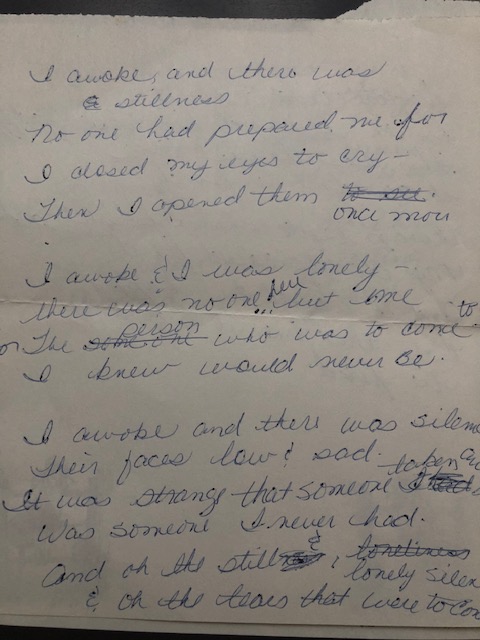 I awoke, and there was
a stillness
No one had prepared me for
I closed my eyes to cry -
Then I opened them to see.
once more
I awoke & I was lonely -
there was no one here but me
or The someone person who was to come to
I knew would never Be.
I awoke and there was silence
Their faces low & sad.
It was strange that someone taken
was someone I never had.
And oh the stillness & , loneliness
lonely silen
& oh the tears that were to con